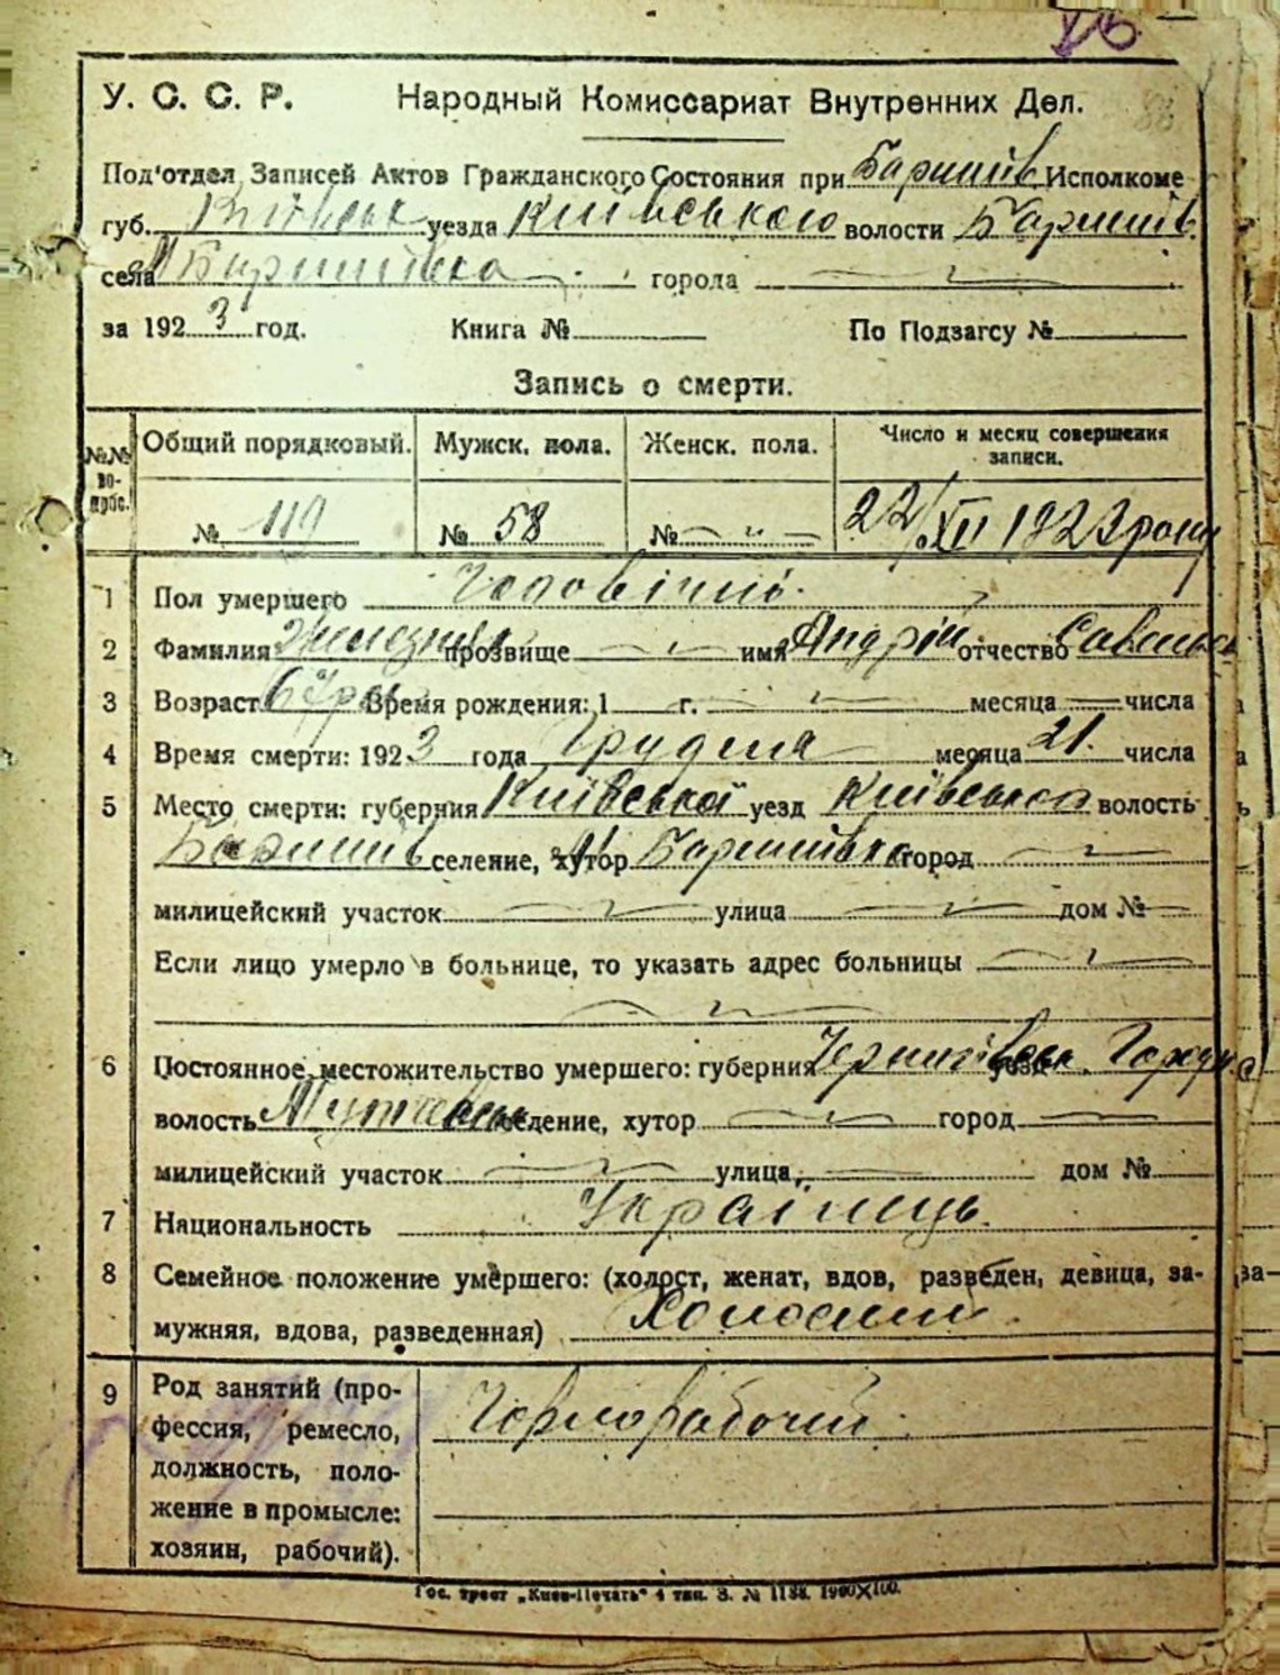 У. С. С. Р. Народный Комиссариат Внутренних Дел.
Под'отдел Записей Актов Гражданского Состояния при Баришів Исполкоме
губ. Київськ уезда Київського волости Баришів.
села М Баришівка города
за 1923 год. Книга № По Подзагсу №
Запись о смерти.
№№ во- прос. Общий порядковый. Мужск. пола. Женск. пола. Число и месяц совершения записи.
№ 119 № 58 № 22/XII 1923 року
1 Пол умершего Чоловічий.
2 Фамилия прозвище имя Андрій отчество
3 Возраст Время рождения: 1 г. месяца числа
4 Время смерти: 1923 года Грудня месяца 21. числа
5 Место смерти: губерния Київської уезд Київського волость
Баришів селение, хутор М Баришівка город
милицейский участок улица дом №
Если лицо умерло в больнице, то указать адрес больницы
6 Постоянное местожительство умершего: губерния Чернигівськ. уезд
волость селение, хутор город
милицейский участок улица, дом №
7 Национальность Українець.
8 Семейное положение умершего: (холост, женат, вдов, разведен, девица, за-
мужняя, вдова, разведенная) Холостий.
9 Род занятий (про-
фессия, ремесло, Чорнорабочий.
должность, поло-
жение в промысле:
хозяин, рабочий).
Гос. трест „Киев-Печать“ 4 тип. З. № 1138. 1900X100.